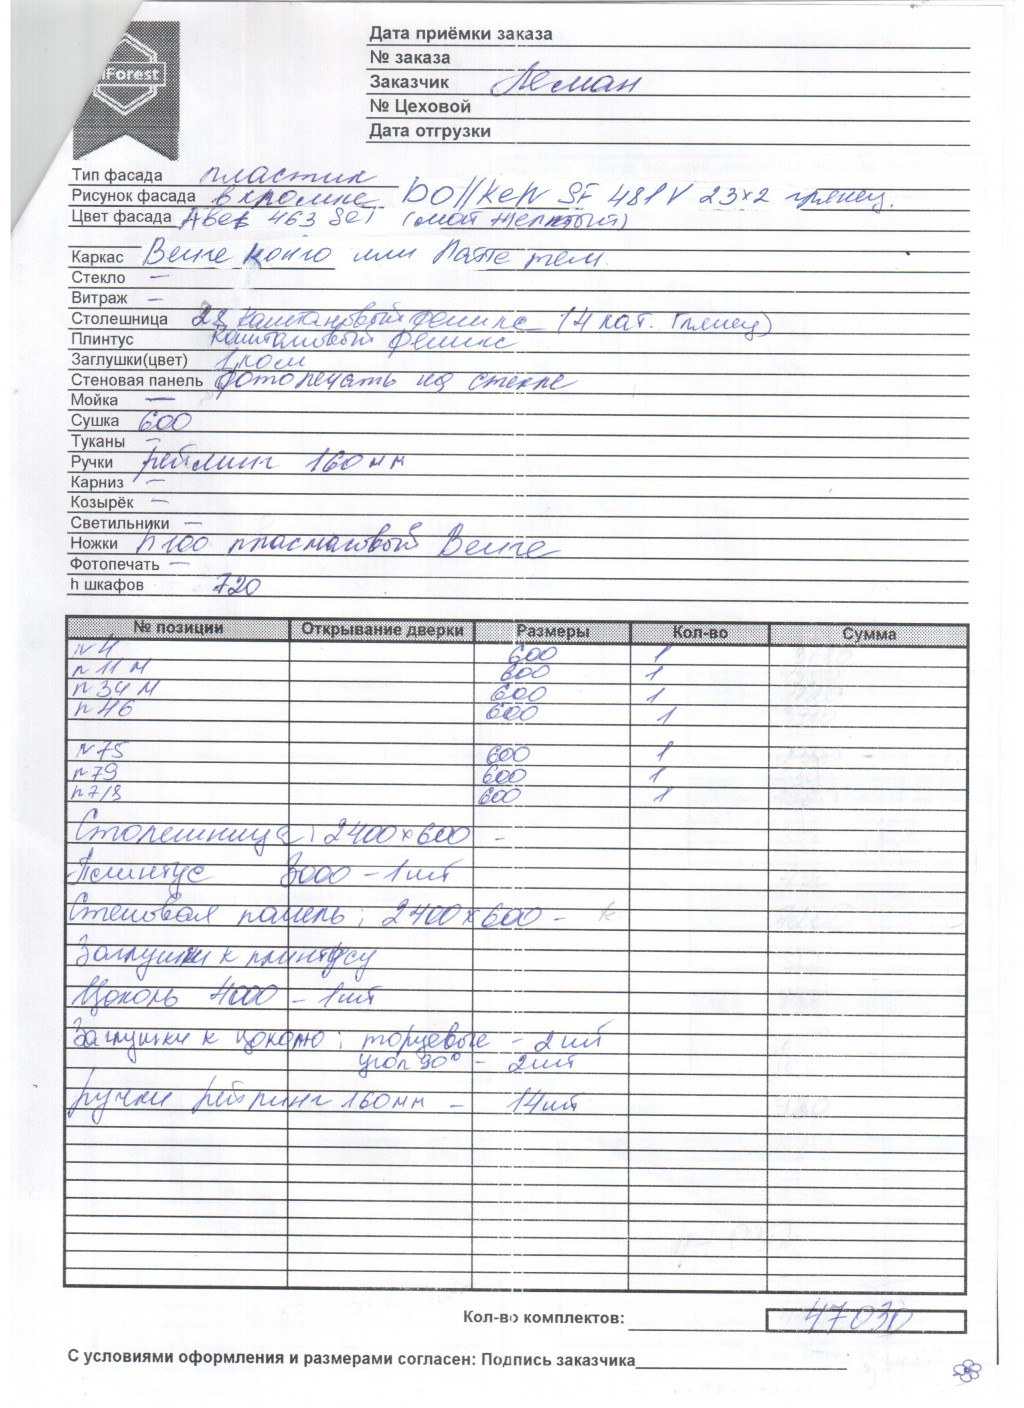 Forest
Дата приёмки заказа
№ заказа
Заказчик Леман
№ Цеховой
Дата отгрузки
Тип фасада пластик
Рисунок фасада в кромке Dollken SF 481V 23x2 глянец.
Цвет фасада Abet 463 Sei (мой желтый)
Каркас Венге конго или Латте тем.
Стекло —
Витраж —
Столешница 28 Каштановый феникс (4 кат. Глянец)
Плинтус Каштановый феникс
Заглушки(цвет) хром
Стеновая панель фотопечать на стекле
Мойка —
Сушка 600
Туканы —
Ручки рейлинг 160мм
Карниз —
Козырёк —
Светильники —
Ножки h100 пластиковый Венге
Фотопечать —
h шкафов 720
№ позиции Открывание дверки Размеры Кол-во Сумма
п4 600 1
п11м 600 1
п34м 600 1
п46 600 1
п75 600 1
п79 600 1
п7/8 600 1
Столешница: 2400x600 -
Плинтус 3000 - 1шт
Стеновая панель: 2400x600 -
Заглушки к плинтусу
Цоколь 4000 - 1шт
Заглушки к цоколю: торцевые - 2шт
угол 90° - 2шт
ручки рейлинг 160мм - 14шт
Кол-во комплектов: 47030
С условиями оформления и размерами согласен: Подпись заказчика